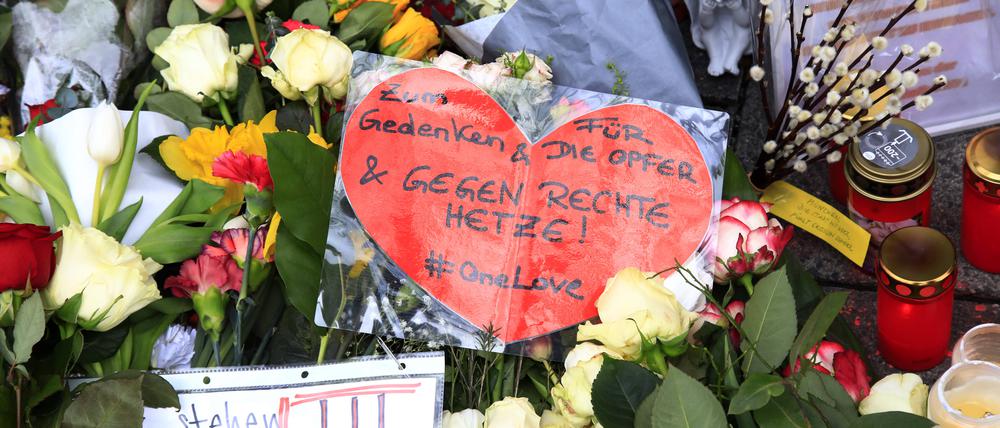 Zum
Gedenken & FÜR
DIE OPFER
& GEGEN RECHTE
HETZE!
#OneLove
stehen
~200